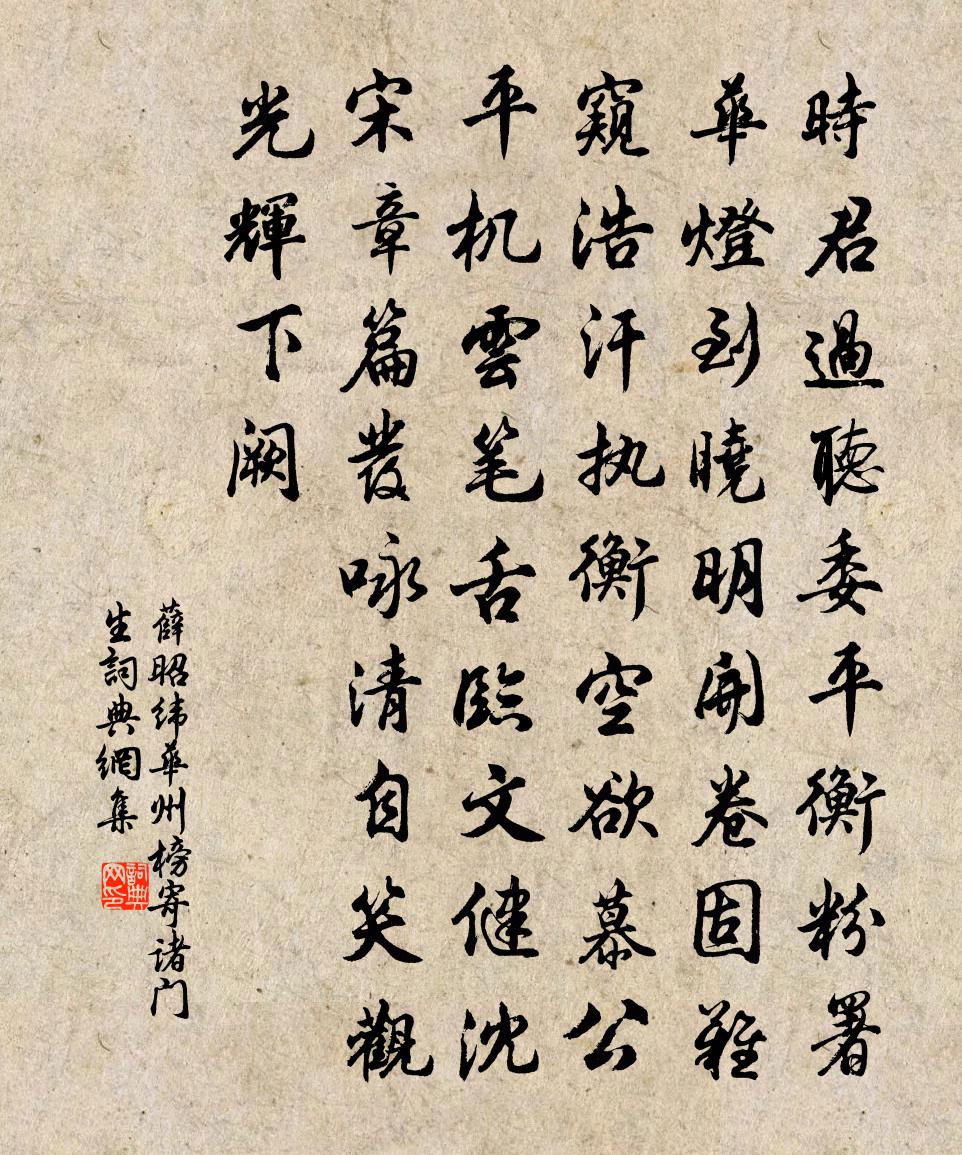 時君過聽委平衡粉署
華燈到曉明開卷固難
窺浩汗执衡空欲慕公
平机雲笔舌臨文健沈
宋章篇發咏清自笑觀
光輝下阙
薛昭纬華州榜寄诸门
生詞典網集
詞典网印